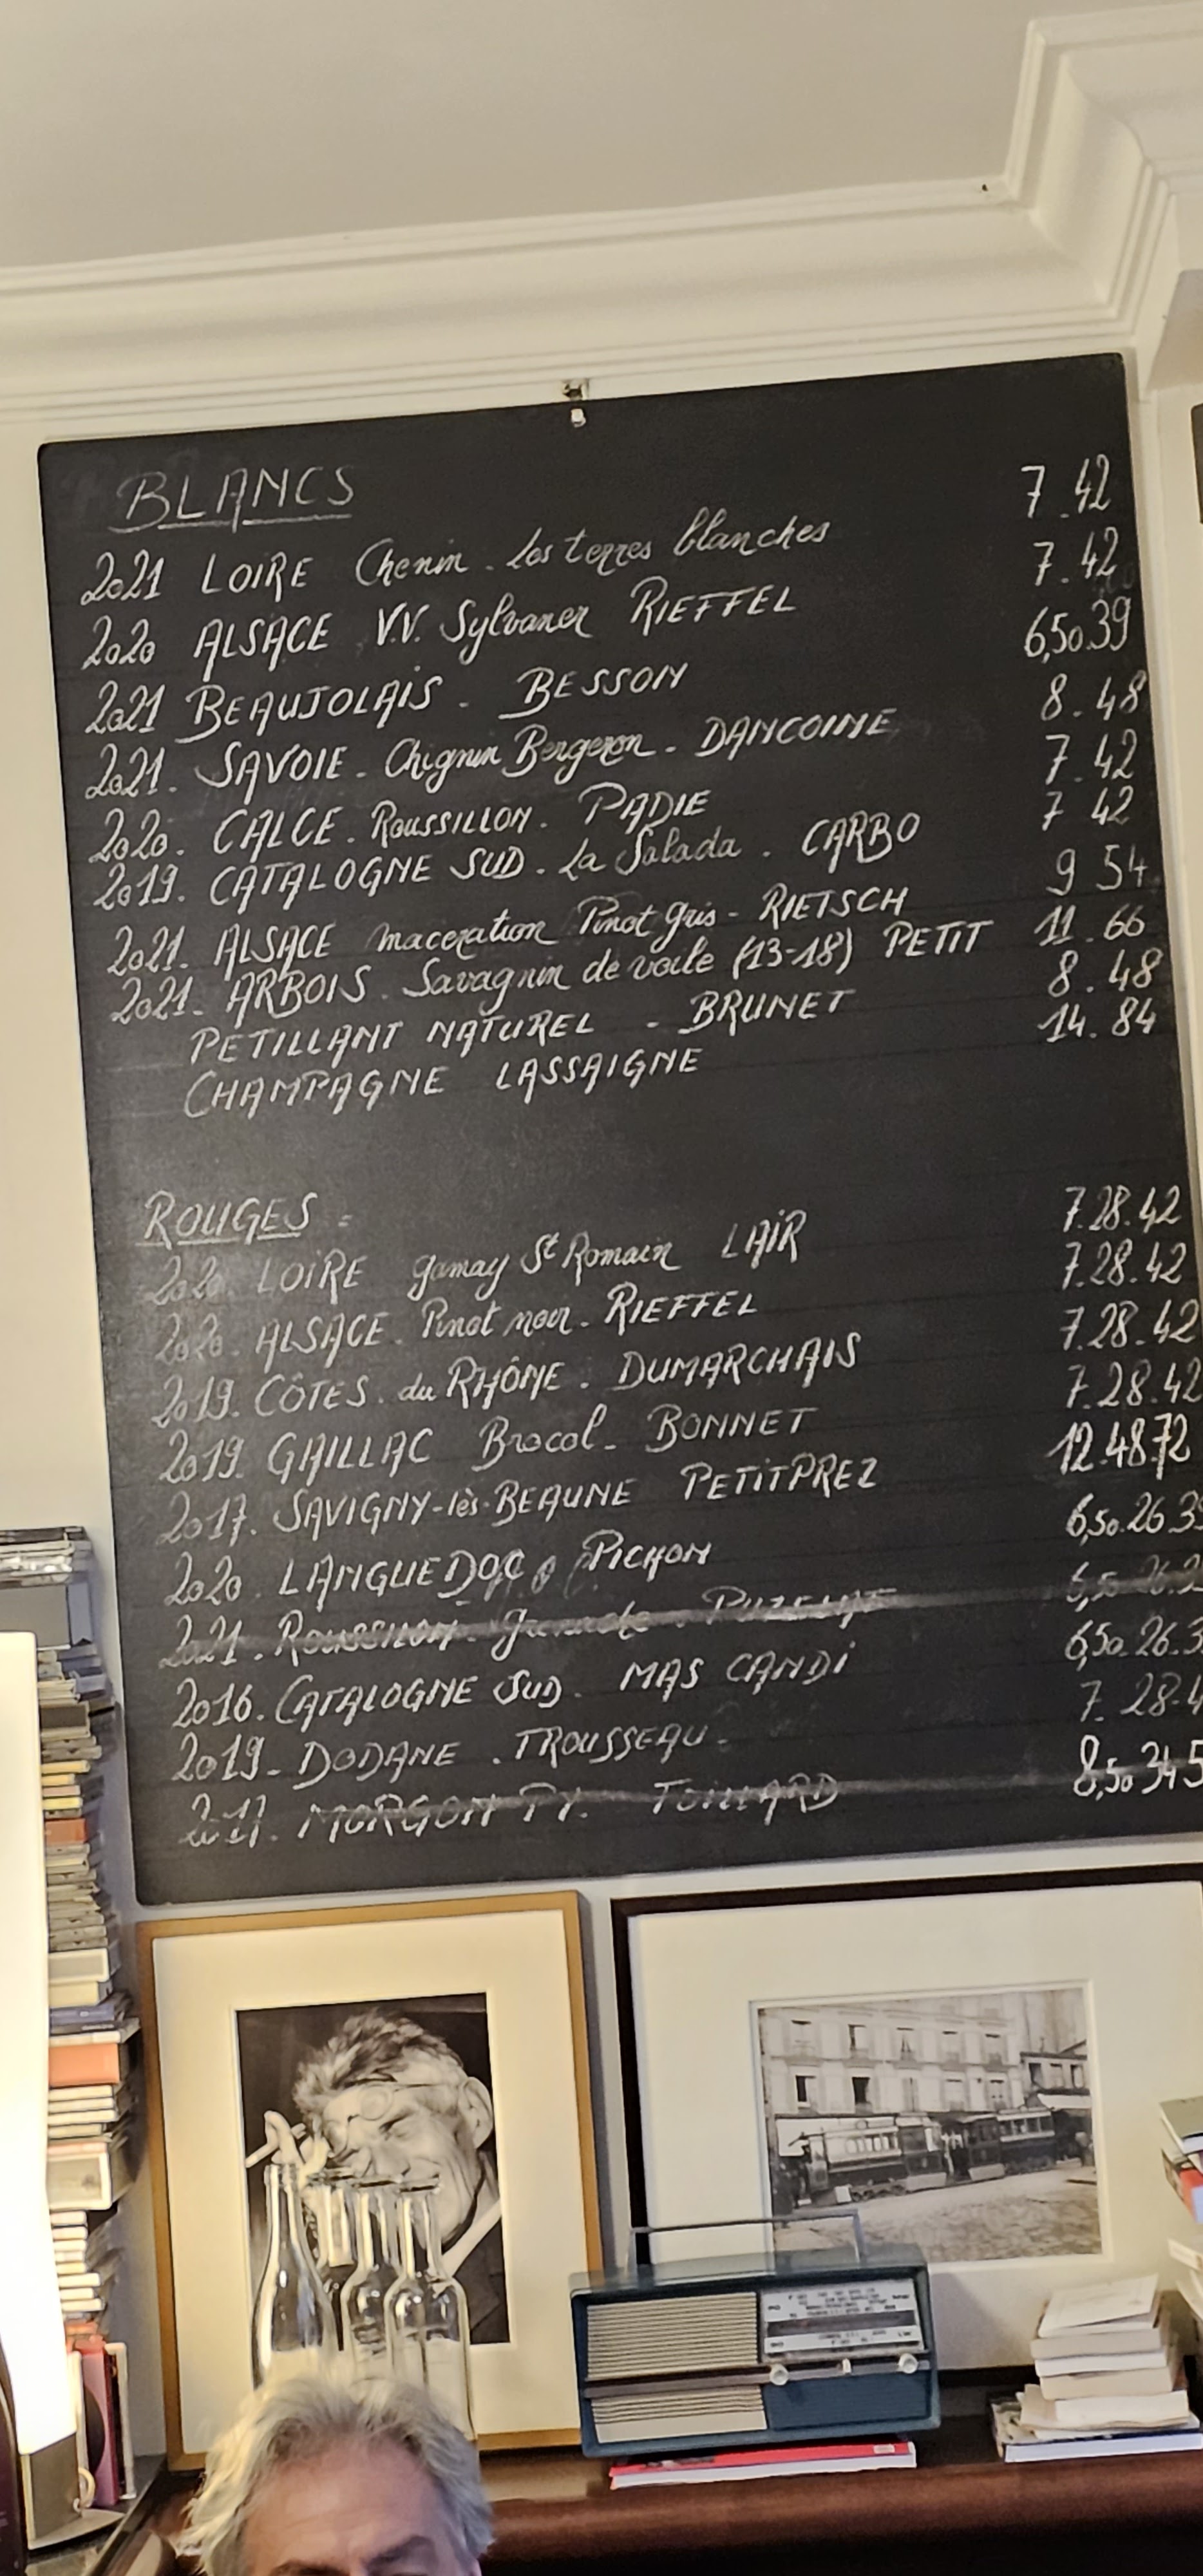 BLANCS
2021 LOIRE Chenin. les terres blanches 7.42
2020 ALSACE V.V. Sylvaner RIEFFEL 7.42
2021 BEAUJOLAIS - BESSON 6,50.39
2021. SAVOIE - Chignin Bergeron - DANCOINE 8.48
2020. CALCE. ROUSSILLON. PADIE 7.42
2019. CATALOGNE SUD. La Salada. CARBO 7 42
2021. ALSACE maceration Pinot gris - RIETSCH 9 54
2021. ARBOIS. Savagnin de voile (13-18) PETIT 11.66
PETILLANT NATUREL - BRUNET 8.48
CHAMPAGNE LASSAIGNE 14.84
ROUGES -
2020. LOIRE gamay St Romain LAIR 7.28.42
2020. ALSACE. Pinot noir. RIEFFEL 7.28.42
2019. CÔTES. du RHÔNE. DUMARCHAIS 7.28.42
2019. GAILLAC Brocol - BONNET 7.28.42
2017. SAVIGNY-lès-BEAUNE PETITPREZ 12.48.72
2020. LANGUEDOC PICHON 6,50.26.3
2021. ROUSSILLON. 6,50
2016. CATALOGNE SUD. MAS CANDI 6,50.26.3
2019 - DODANE. TROUSSEAU - 7.28.4
MORGON PY. 8,50 34 5